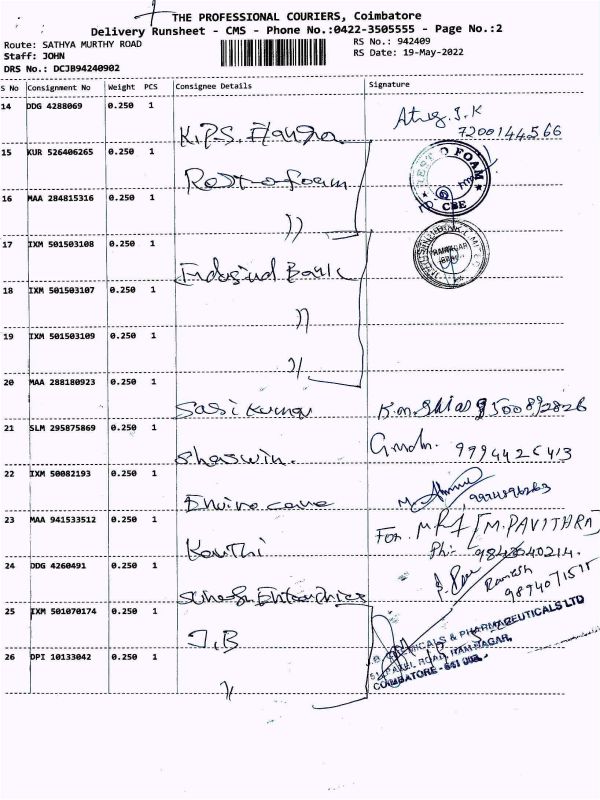 THE PROFESSIONAL COURIERS, Coimbatore
Delivery Runsheet - CMS - Phone No.:0422-3505555 - Page No.:2
Route: SATHYA MURTHY ROAD
RS No.: 942409
Staff: JOHN
RS Date: 19-May-2022
DRS No.: DCJB94240902
S No Consignment No Weight PCS Consignee Details Signature
14 DDG 4288069 0.250 1
K.P.S.
7200144566
15 KUR 526406265 0.250 1
Resto foam
REST O FOAM
CBE
16 MAA 284815316 0.250 1
"
17 IXM 501503108 0.250 1
Indusind Bank
18 IXM 501503107 0.250 1
"
19 IXM 501503109 0.250 1
"
20 MAA 288180923 0.250 1
Sasi kumar
21 SLM 295875869 0.250 1
Shaswin.
9994426413
22 IXM 50082193 0.250 1
Enviro care
23 MAA 941533512 0.250 1
For MRF [M.PAVITHRA]
Ph:- 9842640214.
24 DDG 4260491 0.250 1
Suresh Enterprices
Ramesh
9894071515
25 IXM 501070174 0.250 1
J.B
J.B. CHEMICALS & PHARMACEUTICALS LTD
PATEL ROAD, RAM NAGAR,
COIMBATORE - 641 009.
26 DPI 10133042 0.250 1
"